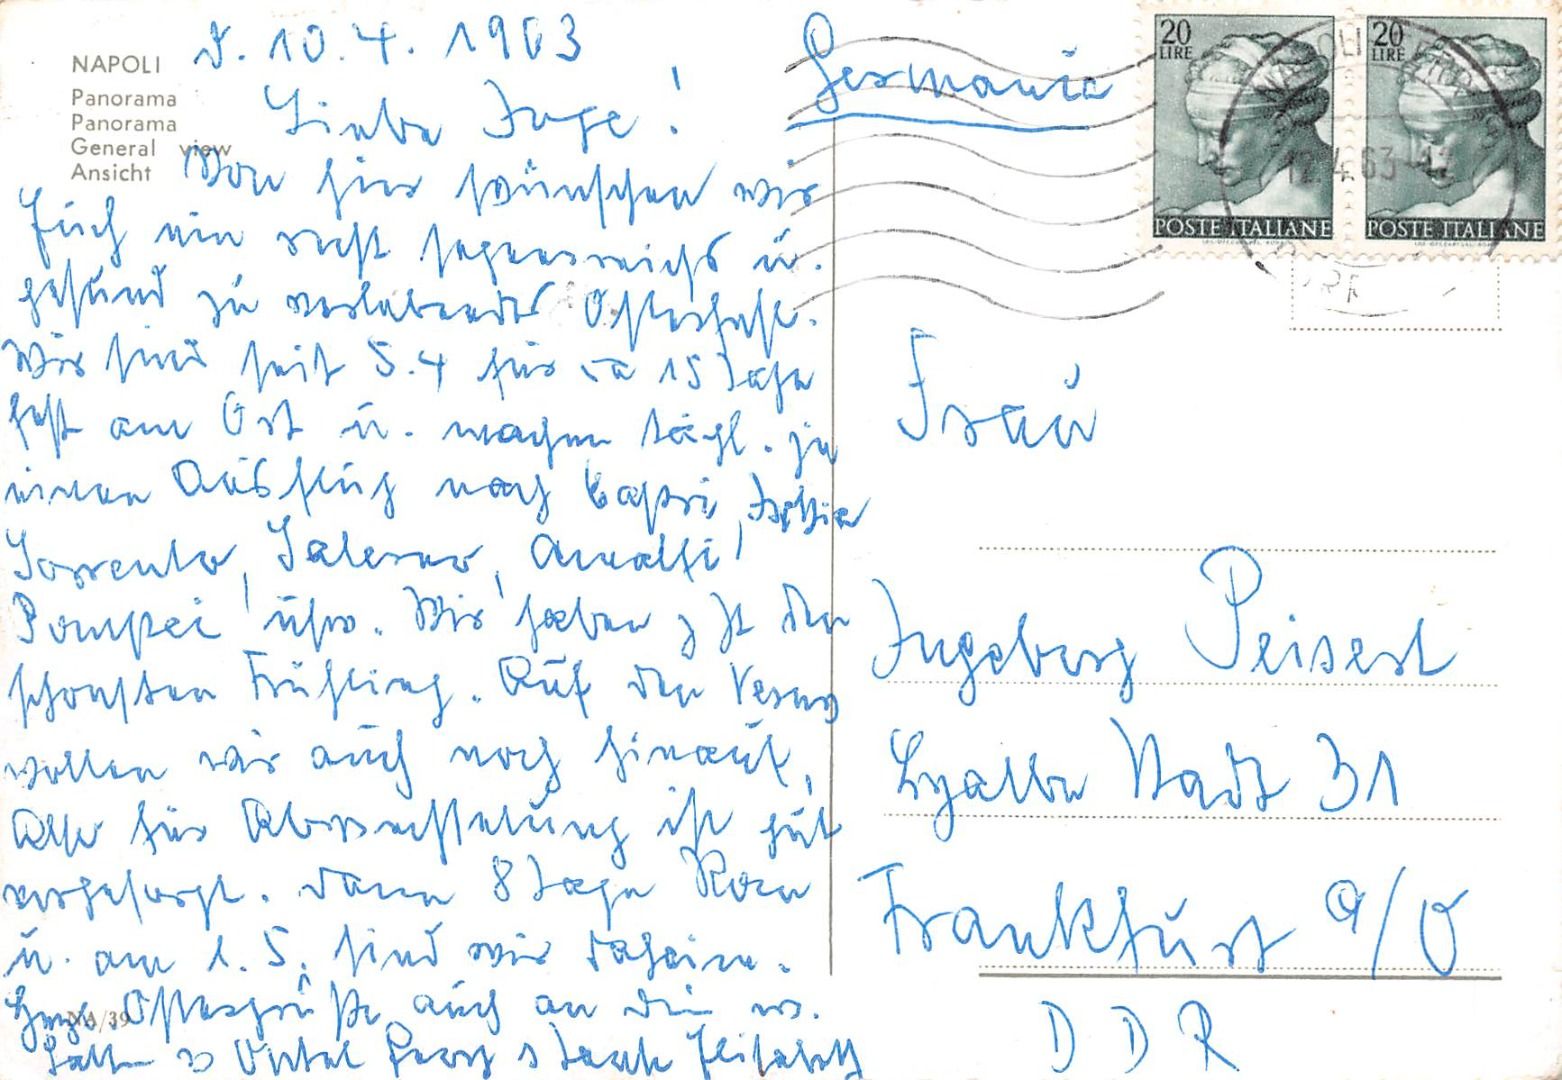 NAPOLI
Panorama
Panorama
General view
Ansicht
d. 10.4.1963
Liebe Inge!
Von hier wünschen wir
Euch ein recht segensreiches u.
gesund zu verlebendes Osterfest.
Wir sind seit 5.4 für ca 15 Tage
fest am Ort u. machen tägl. je
einen Ausflug nach Capri, Ischia
Sorrento, Salerno, Amalfi,
Pompei usw. Wir haben z Zt den
schönsten Frühling. Auf den Vesuv
wollen wir auch noch hinauf,
Also für Abwechslung ist gut
vorgesorgt. Dann 8 Tage Rom
u. am 1.5. sind wir daheim.
Herzl. Ostergrüße auch an
Onkel Georg Tante Elisabeth
NA/39
Germania
20 LIRE
POSTE ITALIANE
20 LIRE
POSTE ITALIANE
12.4.63
Frau
Ingeborg Peisert
Frankfurt a/O
DDR